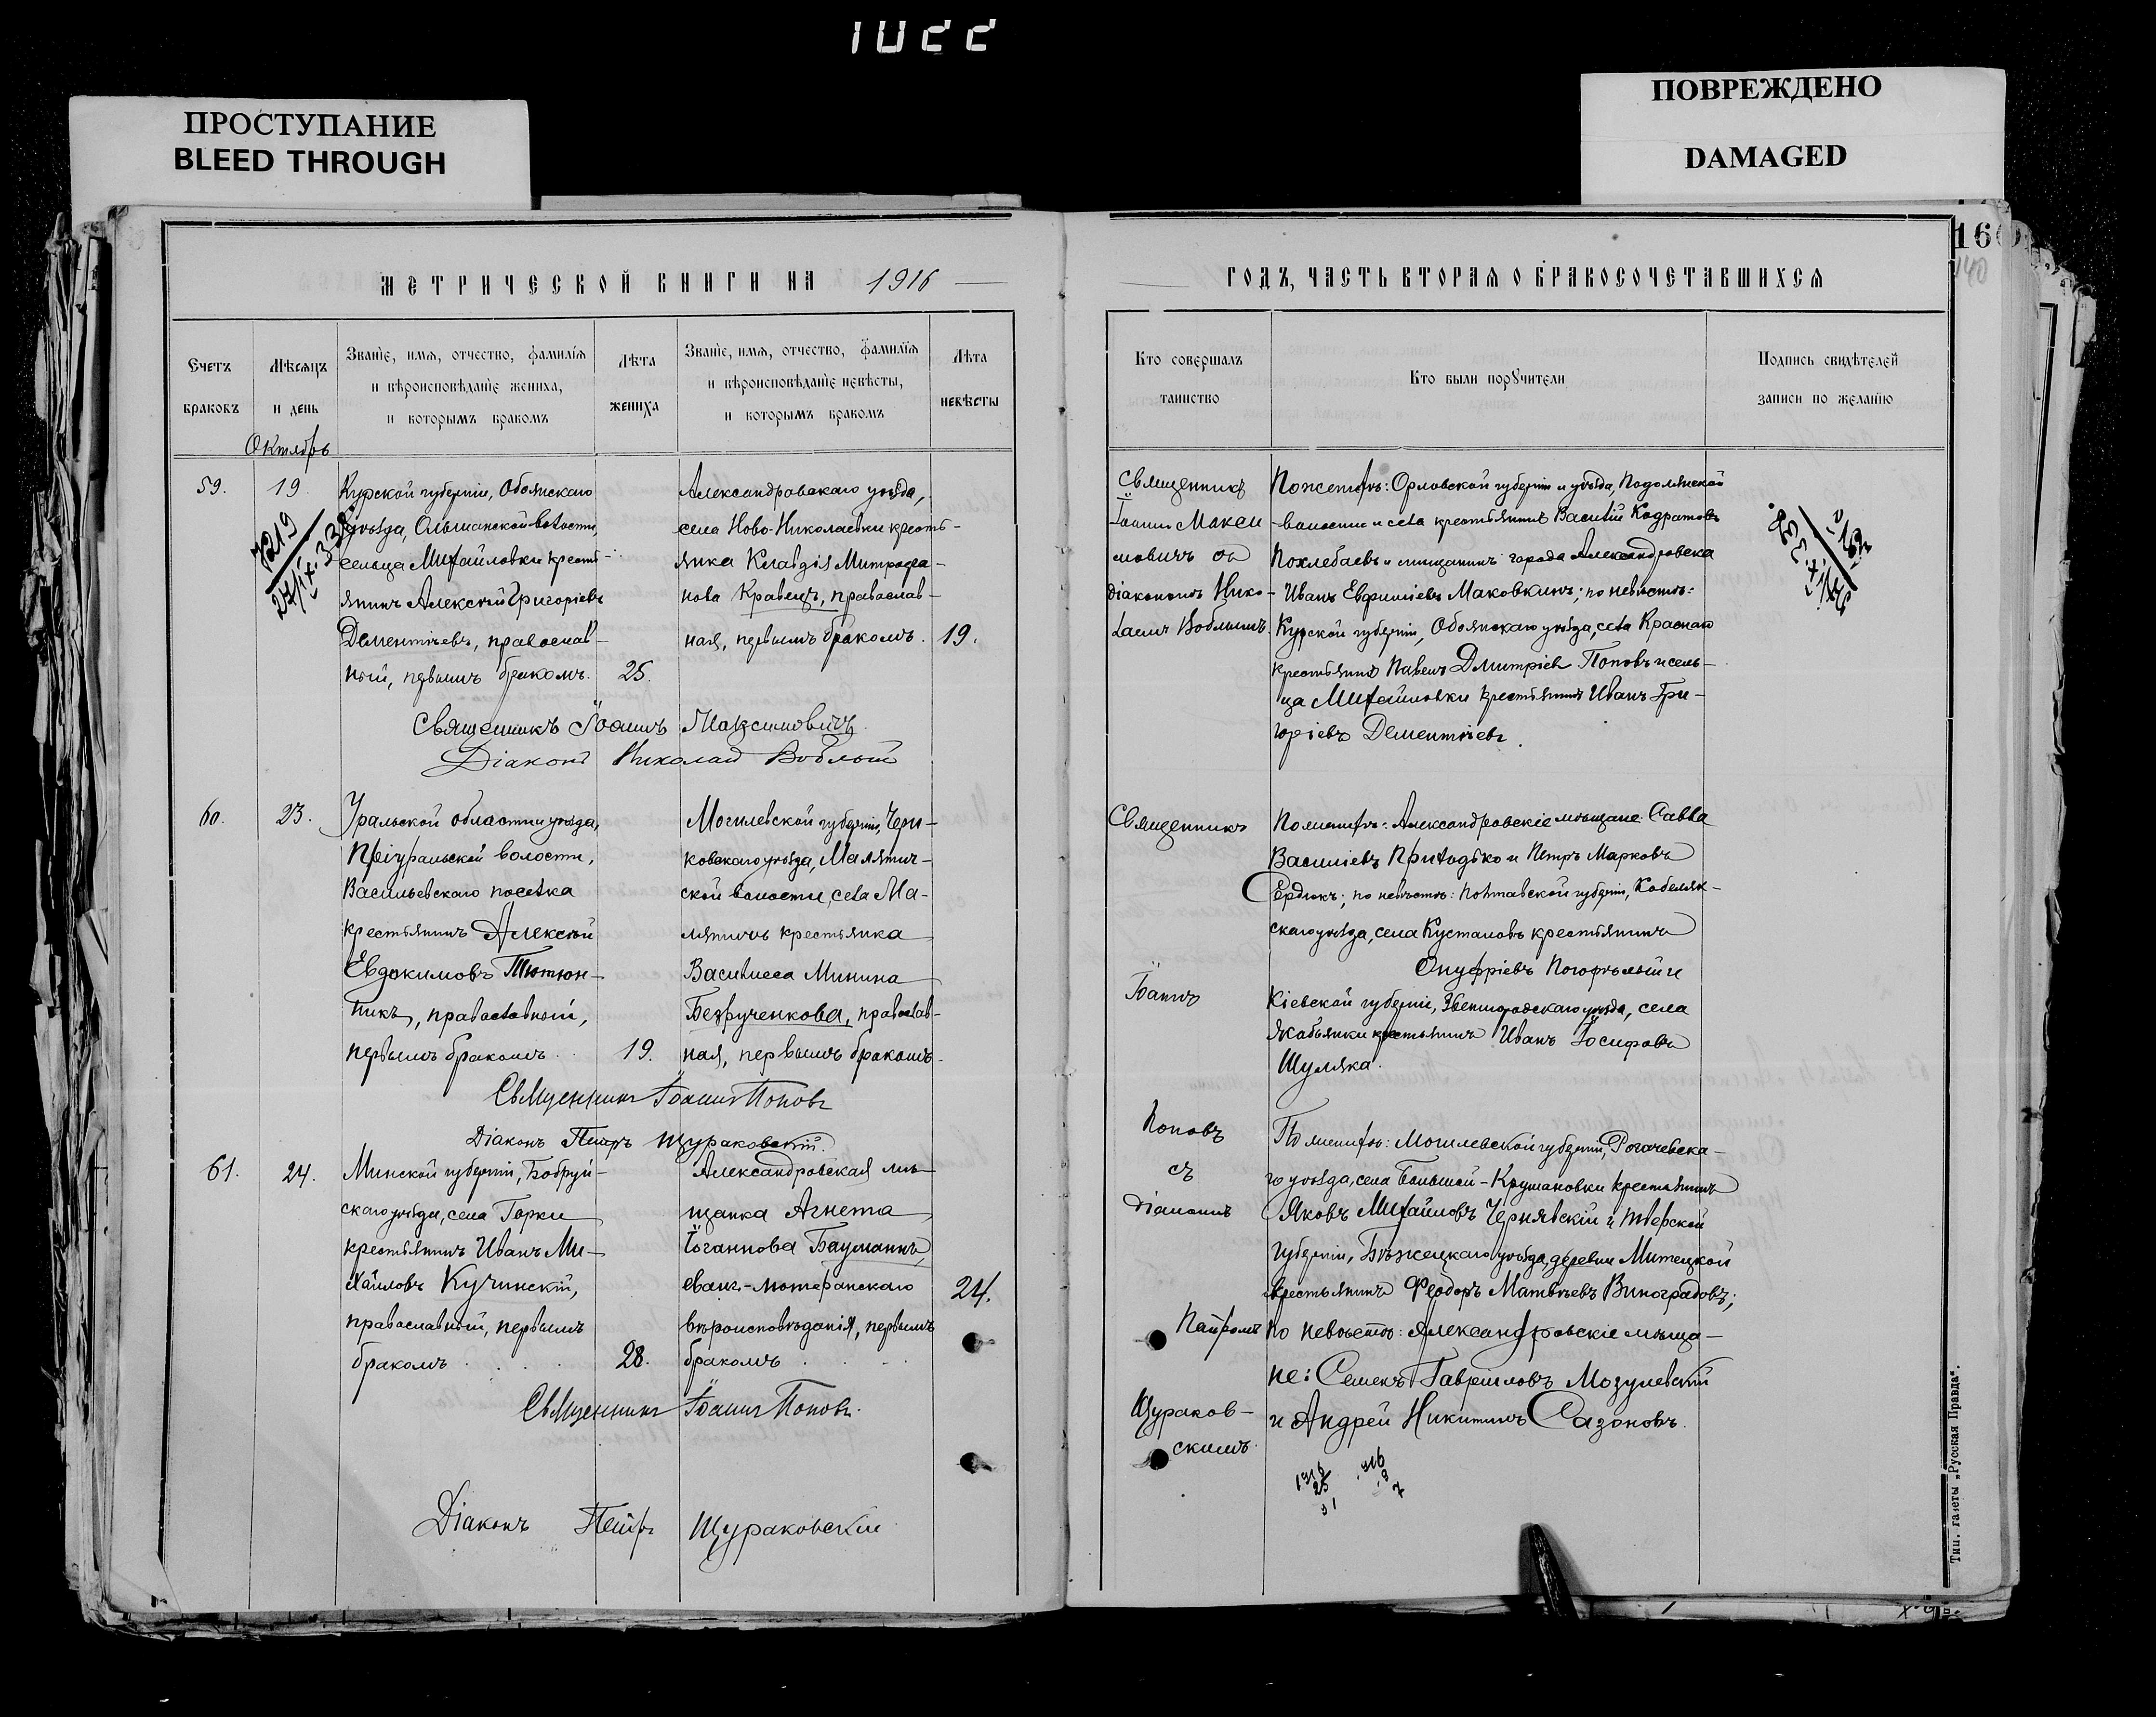 1022
ПРОСТУПАНИЕ
BLEED THROUGH
ПОВРЕЖДЕНО
DAMAGED
160
140
МЕТРИЧЕСКОЙ КНИГИ НА 1916
Счетъ браковъ
Мѣсяцъ и день
Званіе, имя, отчество, фамилія
и вѣроисповѣданіе жениха,
и которымъ бракомъ
Лѣта жениха
Званіе, имя, отчество, фамилія
и вѣроисповѣданіе невѣсты,
и которымъ бракомъ
Лѣта невѣсты
Октябрь
59.
19.
7219
Курской губерніи, Обоянскаго
уѣзда, Ольшанской волости,
сельца Михайловки кресть-
янинъ Алексѣй Григоріевъ
Дементіевъ, православ-
ный, первымъ бракомъ.
25.
Александровскаго уѣзда,
села Ново-Николаевки кресть-
янка Клавдія Митрофа-
нова Кравецъ, православ-
ная, первымъ бракомъ.
19.
Священникъ Іоаннъ Максимовичъ
Діаконъ Николай Воблый
60.
23.
Уральской области и уѣзда,
Пріуральской волости,
Васильевскаго поселка
крестьянинъ Алексѣй
Евдокимовъ Тютюн-
никъ, православный,
первымъ бракомъ
19.
Могилевской губерніи, Чери-
ковскаго уѣзда, Малятич-
ской волости, села Ма-
лятичъ крестьянка
Василиса Минина
Безрученкова, православ-
ная, первымъ бракомъ.
Священникъ Іоаннъ Поповъ
Діаконъ Петръ Щураковскій.
61.
24.
Минской губерніи, Бобруй-
скаго уѣзда, села Горки
крестьянинъ Иванъ Ми-
хайловъ Кучинскій,
православный, первымъ
бракомъ
28.
Александровская мѣ-
щанка Агнета
Іоганнова Бауманнъ,
еванг.-лютеранскаго
вѣроисповѣданія, первымъ
бракомъ
24.
Священникъ Іоаннъ Поповъ.
Діаконъ Петръ Щураковскій
ГОДЪ, ЧАСТЬ ВТОРАЯ О БРАКОСОЧЕТАВШИХСЯ
Кто совершалъ
таинство
Кто были поручители
Подпись свидѣтелей
записи по желанію
Священникъ
Іоаннъ Макси
мовичъ съ
діакономъ Нико-
лаемъ Воблымъ.
По женихѣ: Орловской губерніи и уѣзда, Подолянской
волости и села крестьянинъ Василій Кодратовъ
Похлебаевъ и мѣщанинъ города Александровска
Иванъ Евфиміевъ Маковкинъ; по невѣстѣ:
Курской губерніи, Обоянскаго уѣзда, села Краснаго
крестьянинъ Павелъ Дмитріевъ Поповъ и сель-
ца Михайловки крестьянинъ Иванъ Гри-
горіевъ Дементіевъ.
Священникъ
Іоаннъ
Поповъ
съ
діакономъ
Петромъ
Щураков-
скимъ.
По женихѣ: Александровскіе мѣщане: Савва
Василіевъ Приходько и Петръ Марковъ
Сердюкъ; по невѣстѣ: Полтавской губерніи, Кобеляк-
скаго уѣзда, села Кусталовъ крестьянинъ
Онуфріевъ Погорѣлый и
Кіевской губерніи, Звенигородскаго уѣзда, села
крестьянинъ Иванъ Іосифовъ
Шуляка.
По женихѣ: Могилевской губерніи, Рогачевска-
го уѣзда, села Большой-Крушановки крестьянинъ
Яковъ Михайловъ Чернявскій и Тверской
губерніи, Бѣжецкаго уѣзда, деревни Митецкой
крестьянинъ Феодоръ Матвѣевъ Виноградовъ;
по невѣстѣ: Александровскіе мѣща-
не: Семенъ Гавриловъ Мозулевскій
и Андрей Никитинъ Сазоновъ.
Тип. газеты „Русская Правда“.